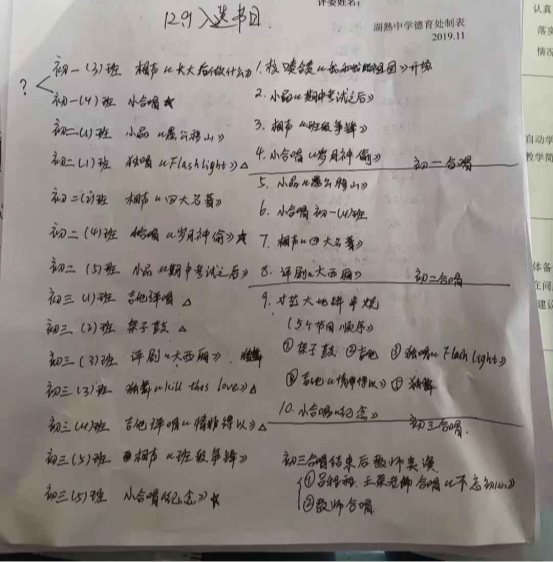 评委姓名:
湖熟中学德育处制表
2019.11
129入选节目
初一(3)班 相声《长大后做什么》
?
初一(4)班 小合唱 ★
初二(1)班 小品《愚公移山》
初二(1)班 独唱《Flashlight》△
初二(2)班 相声《四大名著》
初二(4)班 小合唱《岁月神偷》★
初二(5)班 小品《期中考试之后》
初三(1)班 吉他弹唱 △
初三(2)班 架子鼓 △
初三(3)班 评剧《大西厢》
初三(3)班 独舞《kill this love》△
初三(4)班 吉他弹唱《情非得以》△
初三(5)班 相声《班级争锋》
初三(5)班 小合唱《纪念》★
1. 校嗓鼓《我和我的祖国》开场
2. 小品《期中考试之后》
3. 相声《班级争锋》
4. 小合唱《岁月神偷》
初一合唱
5. 小品《愚公移山》
6. 小合唱 初一(4)班
7. 相声《四大名著》
8. 评剧《大西厢》
初二合唱
9. 才艺大比拼串烧
(5个节目顺序)
①架子鼓 ②吉他 ③独唱《Flashlight》
④吉他《情非得以》⑤独舞
10. 小合唱《纪念》
初三合唱
初三合唱结束后教师表演
老师合唱《不忘初心》
②教师合唱
认真
落实
情况
自动学
教学简
体备
在问
建议